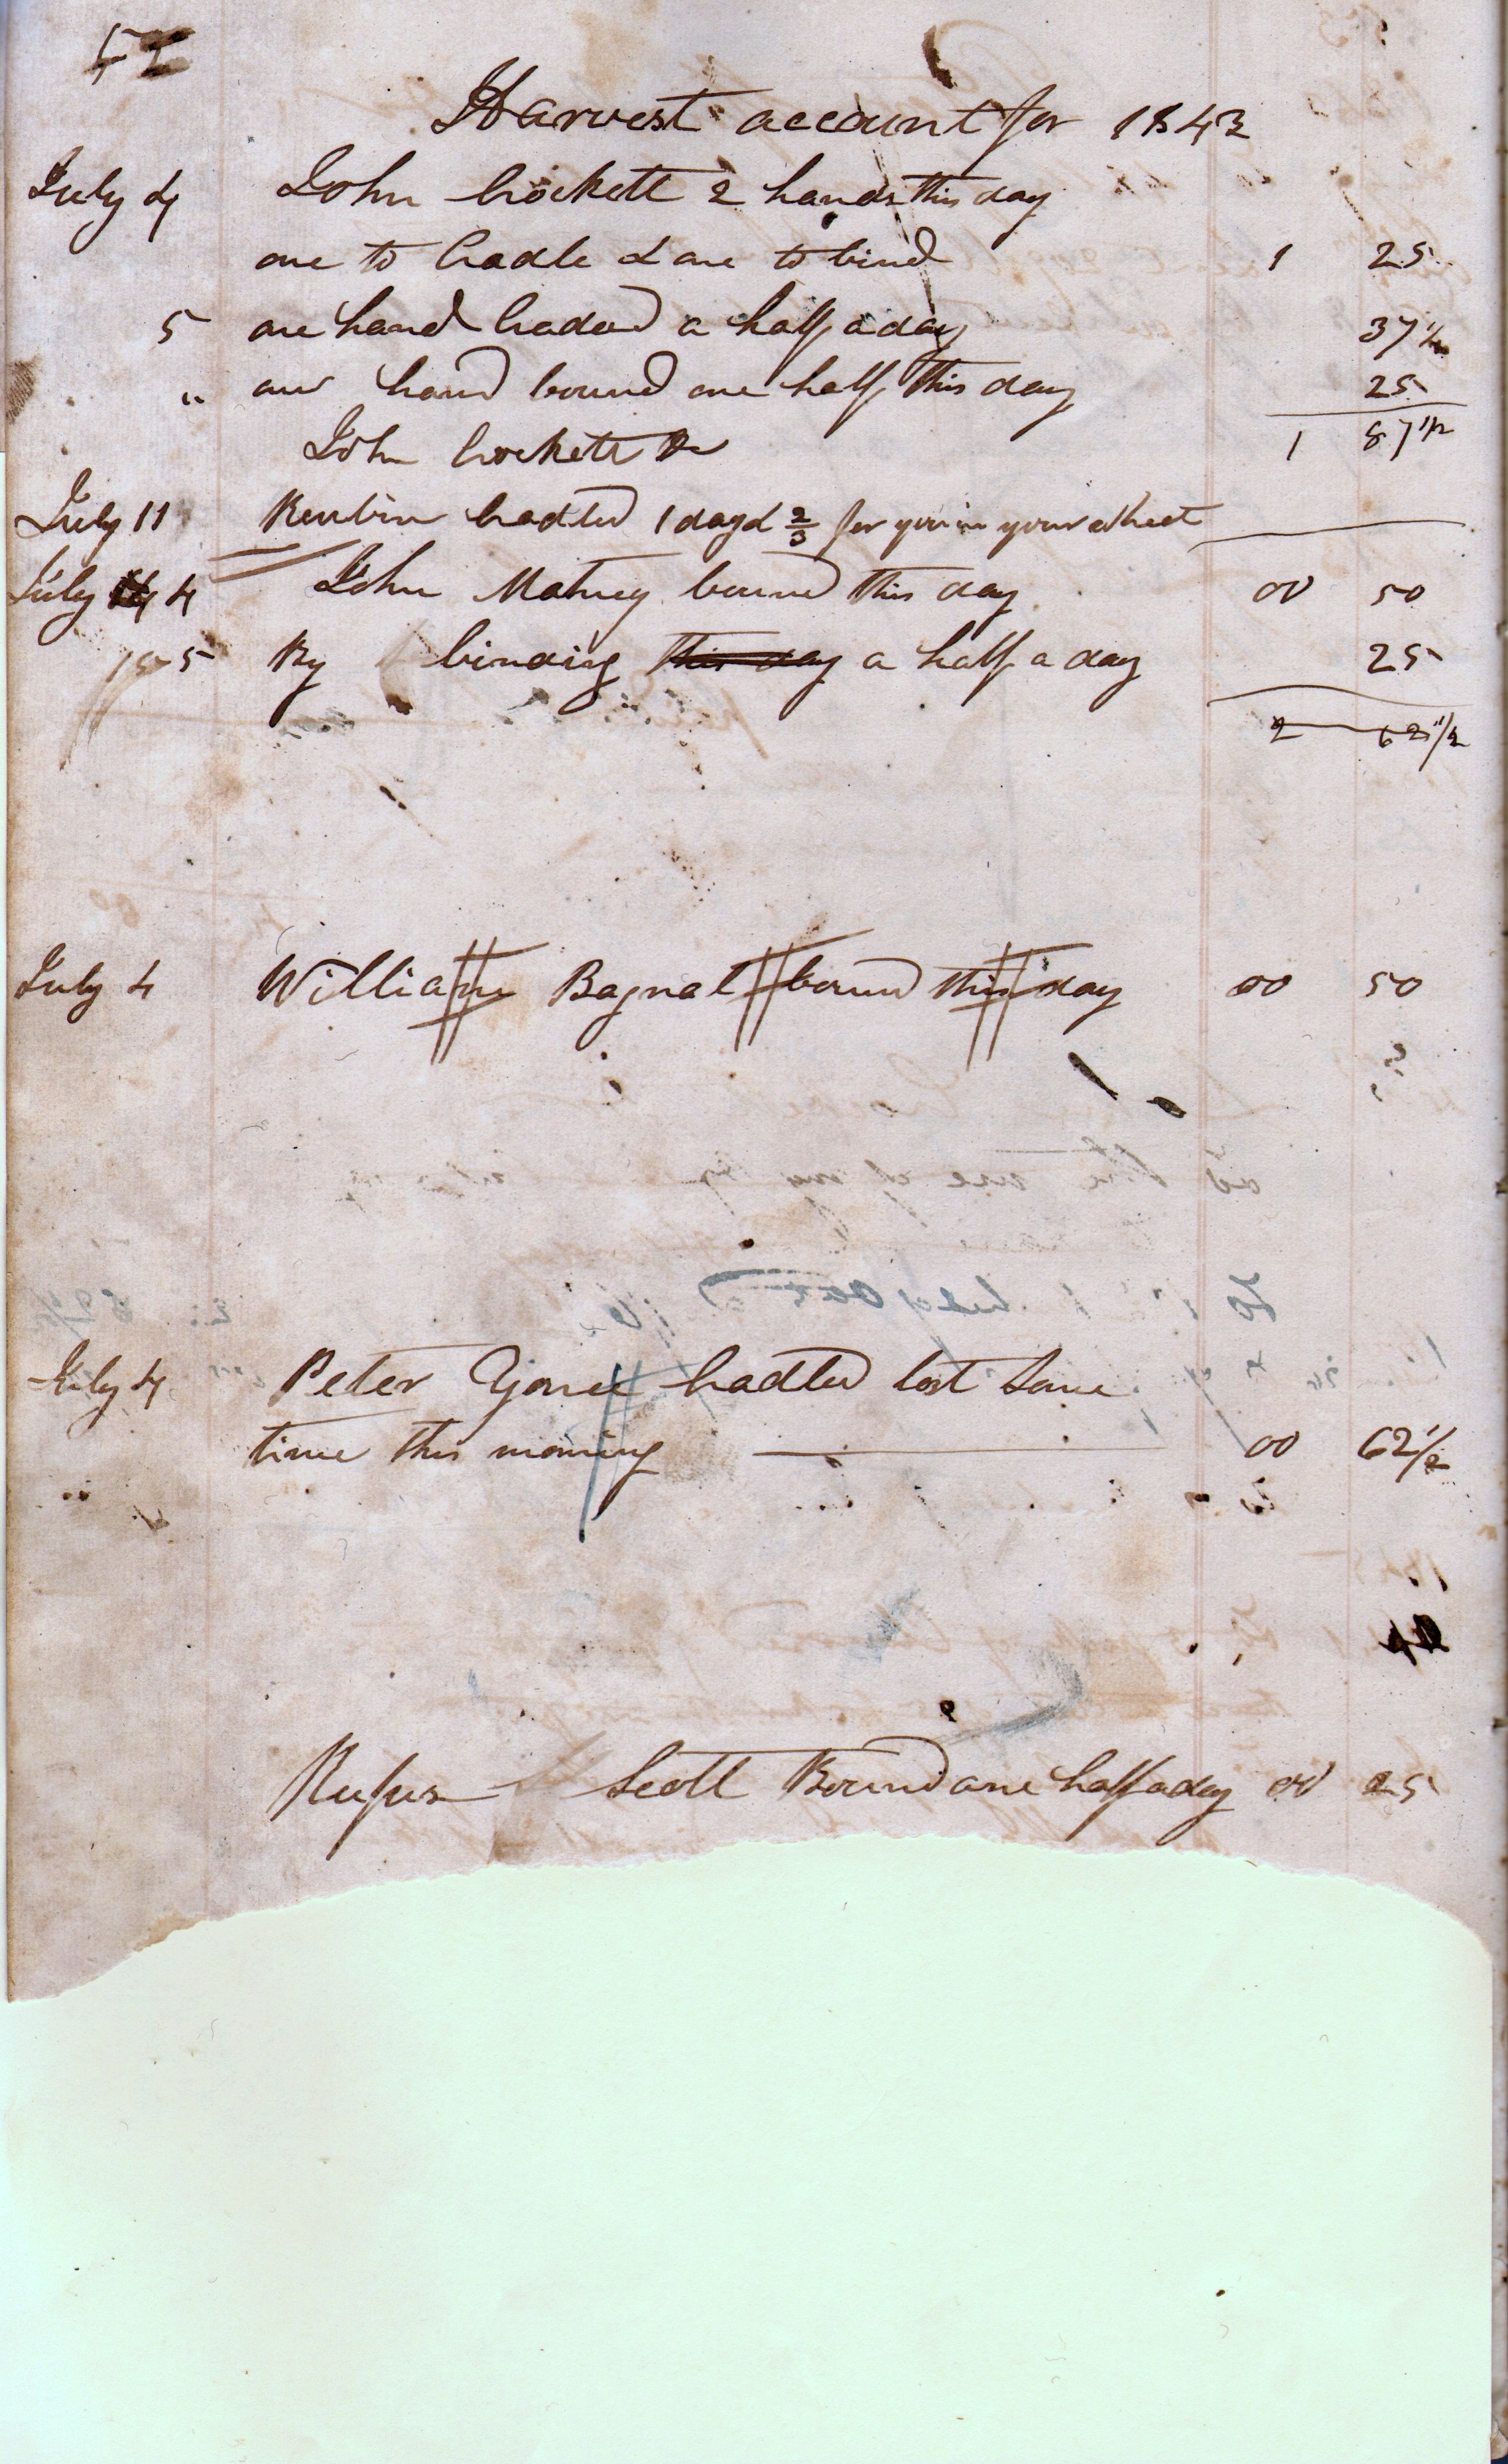 Harvest account for 1843
July 4 John Crockett 2 hands this day
one to Cradle & one to bind 1 25
5 one hand Cradled a half a day 37 1/2
" one hand bound one half this day 25
John Crockett Dr 1 87 1/2
July 11 Reubin Cradled 1 day & 2/3 for you in your wheat
July 4 John Matney bound this day 00 50
5 By binding this day a half a day 25
2 62 1/2
July 4 William Bagnal bound this day 00 50
July 4 Peter Cradled lost Some
time this morning 00 62 1/2
Rufus Scott Bound one half a day 00 25